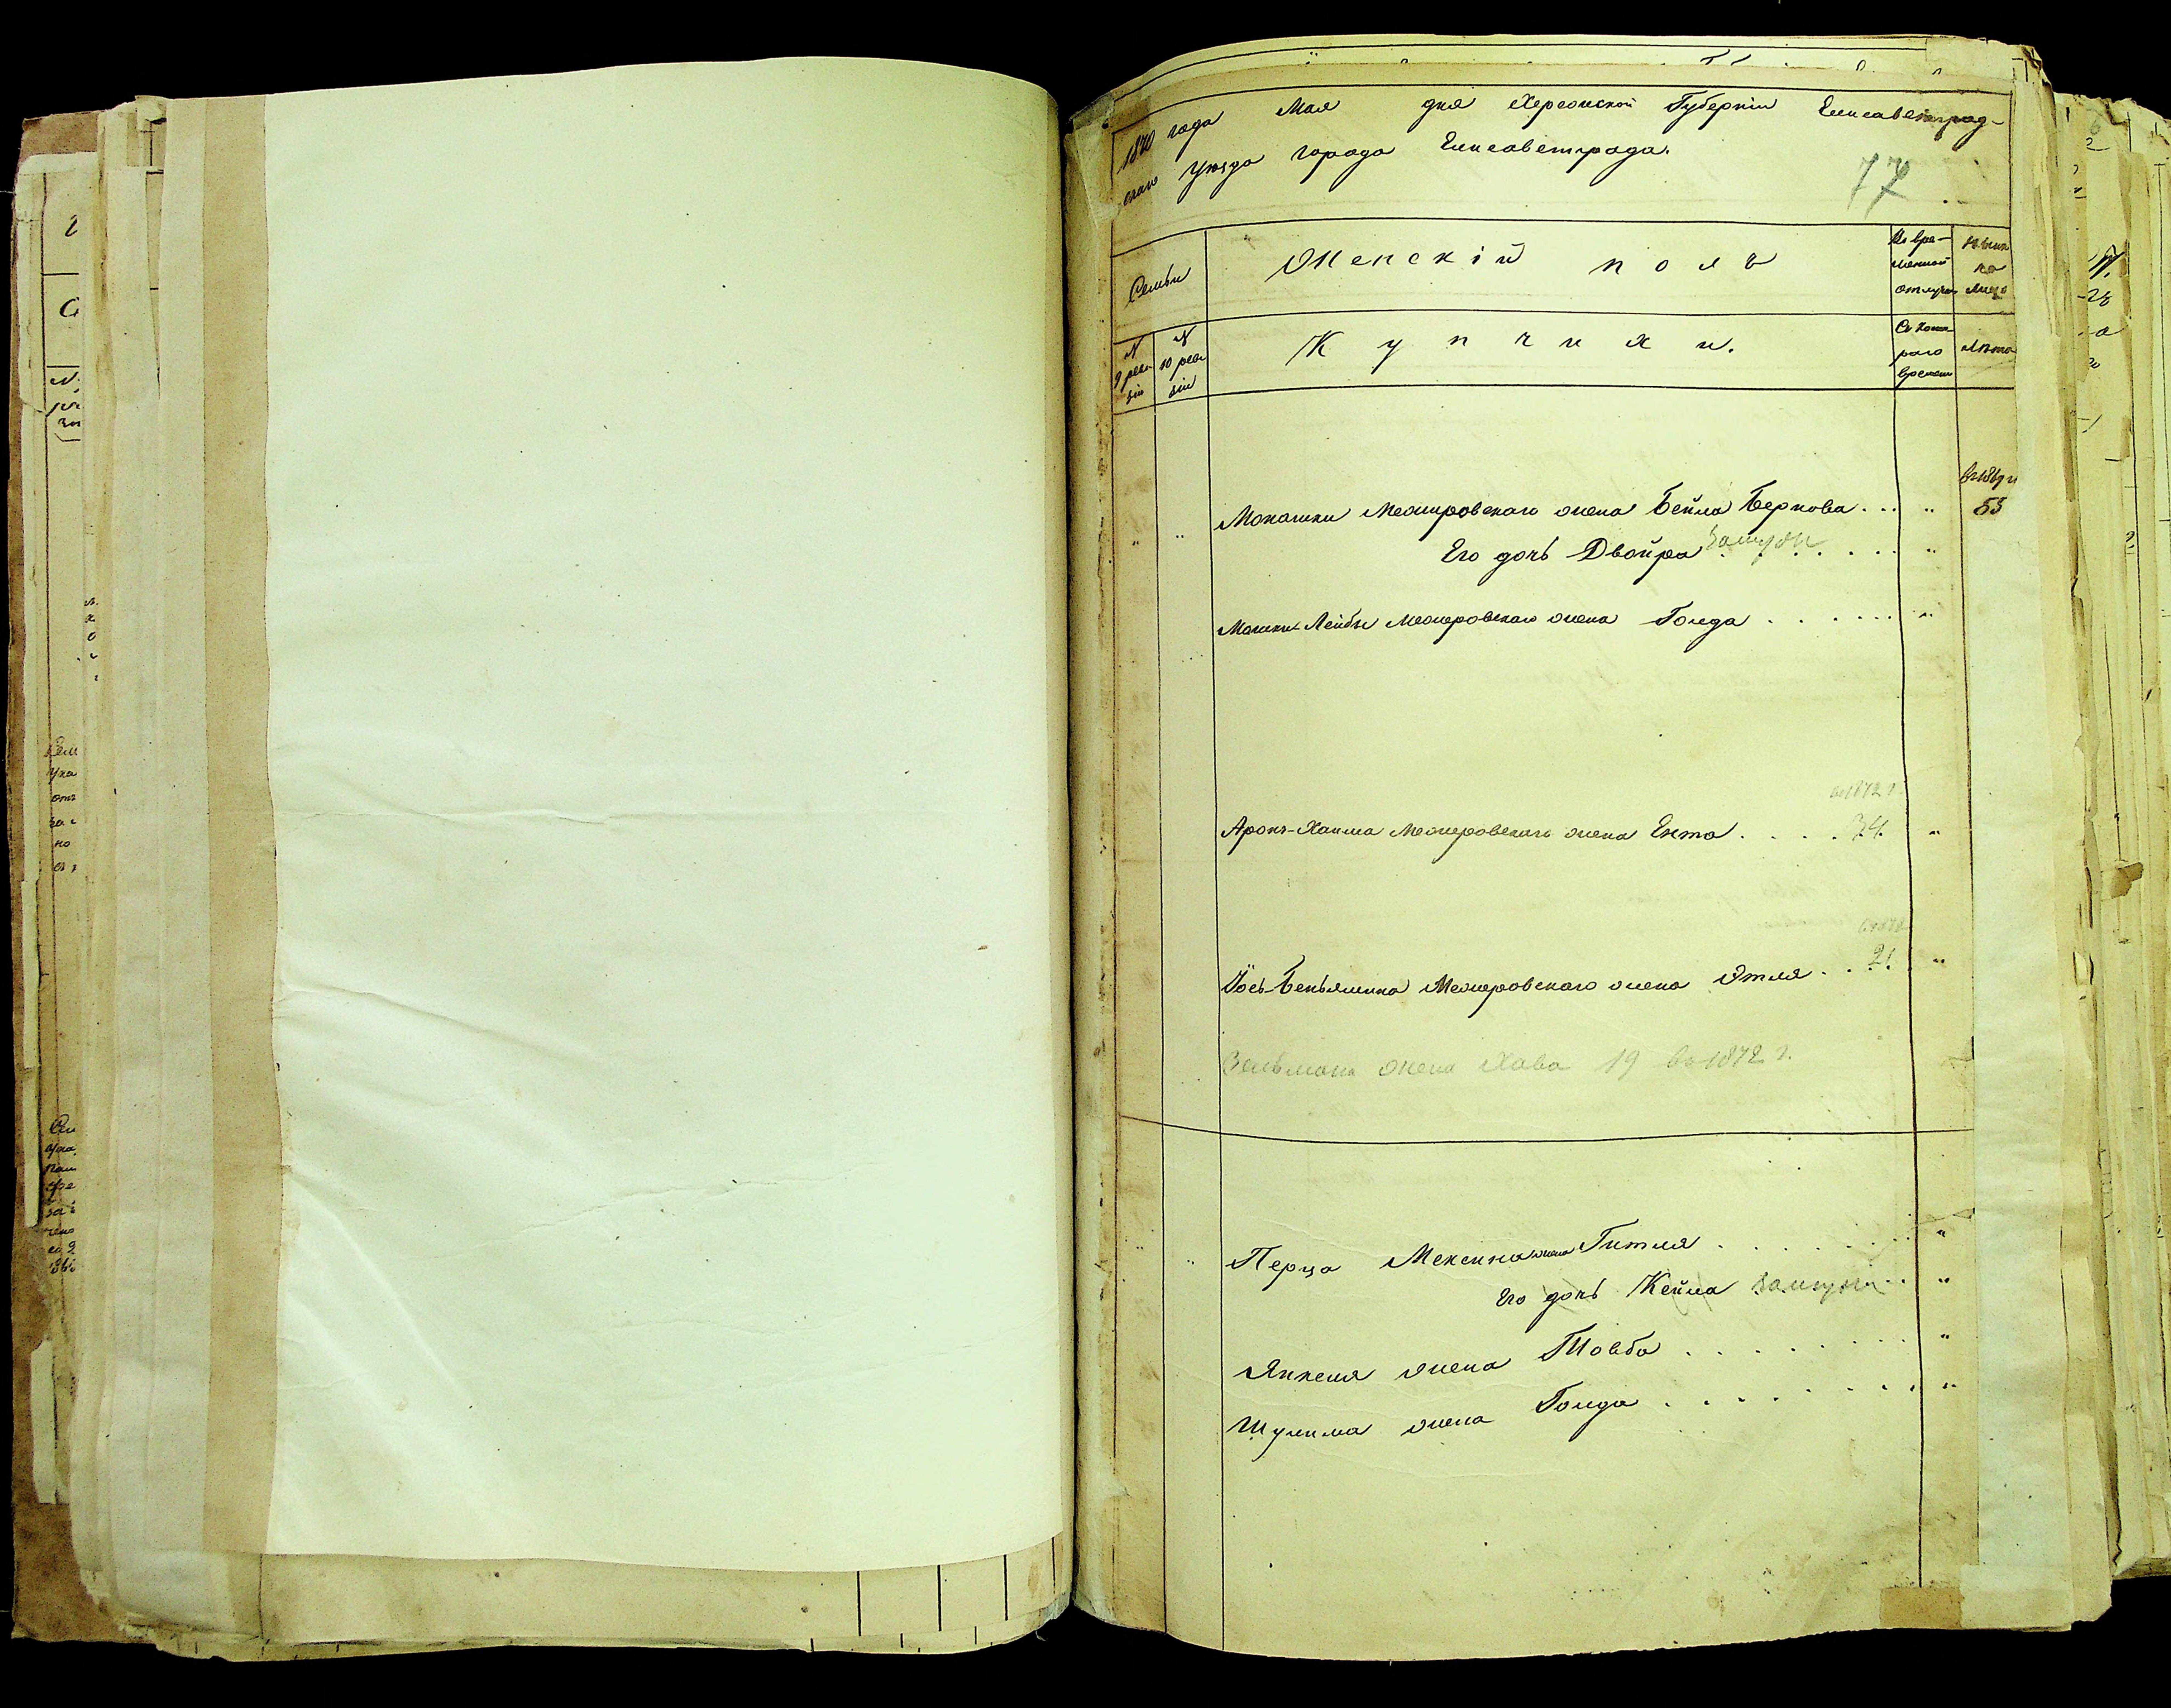 1870 года Мая дня Херсонской Губернiи Елисаветград-
скаго Уѣзда города Елисаветграда.
77
Семьи
Женскiй полъ
Во вре-
менной
отлучкѣ
Нынѣ
на
лицо
N
9 реви
зiи
N
10 реви
зiи
Купчихи.
Съ кото
раго
времени
Лѣта
въ 1869 г
Монашки Меоцровскаго жена Бейла Беркова . . . " 53
" " Его дочь Двойра замуж . . . . "
Мошки-Лейбы Меоцровскаго жена Голда . . . . . . "
въ 1872 г
Аронъ-Хаима Меоцровскаго жена Ента . . . . 34. "
въ 1872
Iось-Беньямина Меоцровскаго жена Этля . . . 21. "
Зельмана жена Хава 19 въ 1872 г.
" " Перца Мексина жена Гитля . . . . . . . "
Его дочь Кейла замужем . . "
Янкеля жена Товба . . . . . . . "
Шулима жена Голда . . . . . . . . "